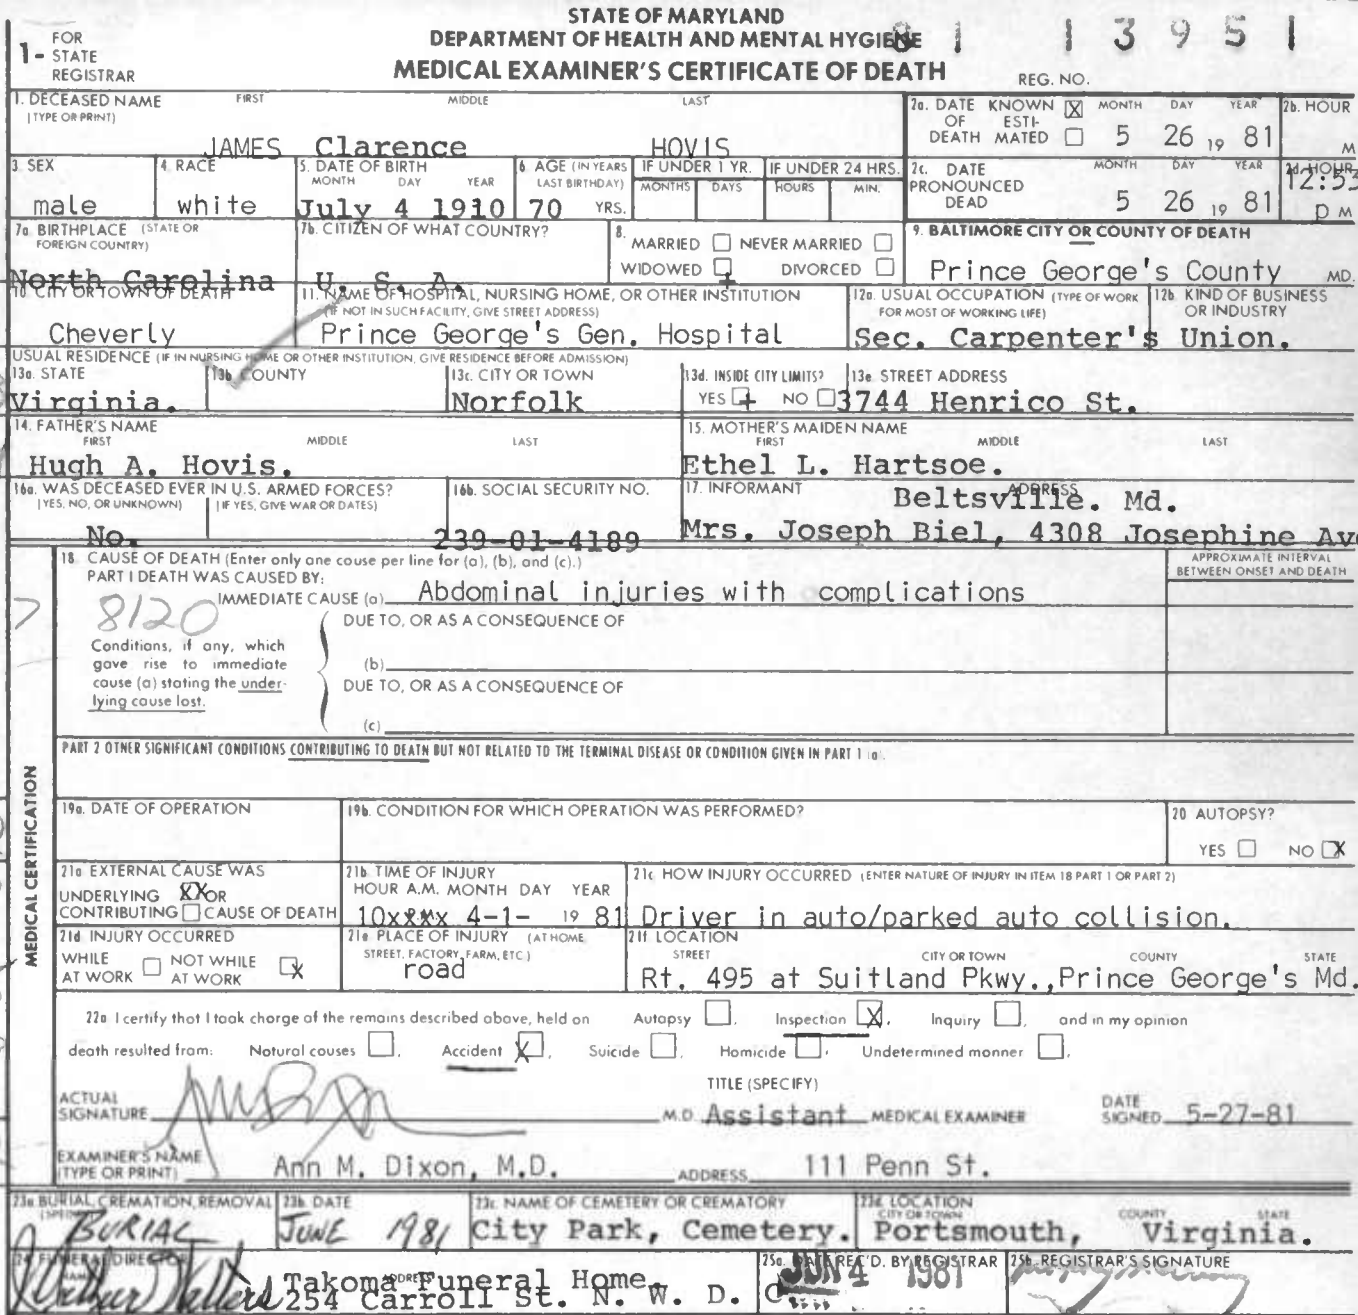 STATE OF MARYLAND
DEPARTMENT OF HEALTH AND MENTAL HYGIENE
MEDICAL EXAMINER'S CERTIFICATE OF DEATH
1- FOR STATE REGISTRAR
81 13951
REG. NO.
1. DECEASED NAME (TYPE OR PRINT) FIRST MIDDLE LAST
JAMES Clarence HOVIS
2a. DATE OF DEATH KNOWN [X] ESTIMATED [ ] MONTH DAY YEAR
5 26 19 81
2b. HOUR M
3 SEX
male
4. RACE
white
5. DATE OF BIRTH MONTH DAY YEAR
July 4 1910
6 AGE (IN YEARS LAST BIRTHDAY)
70 YRS.
IF UNDER 1 YR. MONTHS DAYS
IF UNDER 24 HRS. HOURS MIN.
2c. DATE PRONOUNCED DEAD MONTH DAY YEAR
5 26 19 81
2d. HOUR
12:53 p M
7a. BIRTHPLACE (STATE OR FOREIGN COUNTRY)
North Carolina
7b. CITIZEN OF WHAT COUNTRY?
U. S. A.
8. MARRIED NEVER MARRIED
WIDOWED + DIVORCED
9. BALTIMORE CITY OR COUNTY OF DEATH
Prince George's County MD.
10. CITY OR TOWN OF DEATH
Cheverly
11. NAME OF HOSPITAL, NURSING HOME, OR OTHER INSTITUTION
(IF NOT IN SUCH FACILITY, GIVE STREET ADDRESS)
Prince George's Gen. Hospital
12a. USUAL OCCUPATION (TYPE OF WORK FOR MOST OF WORKING LIFE)
12b. KIND OF BUSINESS OR INDUSTRY
Sec. Carpenter's Union.
USUAL RESIDENCE (IF IN NURSING HOME OR OTHER INSTITUTION, GIVE RESIDENCE BEFORE ADMISSION)
13a. STATE
Virginia.
13b. COUNTY
13c. CITY OR TOWN
Norfolk
13d. INSIDE CITY LIMITS?
YES + NO
13e. STREET ADDRESS
3744 Henrico St.
14. FATHER'S NAME FIRST MIDDLE LAST
Hugh A. Hovis.
15. MOTHER'S MAIDEN NAME FIRST MIDDLE LAST
Ethel L. Hartsoe.
16a. WAS DECEASED EVER IN U.S. ARMED FORCES?
(YES, NO, OR UNKNOWN) (IF YES, GIVE WAR OR DATES)
No.
16b. SOCIAL SECURITY NO.
239-01-4189
17. INFORMANT ADDRESS
Beltsville. Md.
Mrs. Joseph Biel, 4308 Josephine Ave
18. CAUSE OF DEATH (Enter only one cause per line for (a), (b), and (c).)
APPROXIMATE INTERVAL BETWEEN ONSET AND DEATH
PART I DEATH WAS CAUSED BY:
8120
IMMEDIATE CAUSE (a) Abdominal injuries with complications
DUE TO, OR AS A CONSEQUENCE OF
Conditions, if any, which gave rise to immediate cause (a) stating the underlying cause last.
(b)
DUE TO, OR AS A CONSEQUENCE OF
(c)
PART 2 OTHER SIGNIFICANT CONDITIONS CONTRIBUTING TO DEATH BUT NOT RELATED TO THE TERMINAL DISEASE OR CONDITION GIVEN IN PART 1 (a).
MEDICAL CERTIFICATION
19a. DATE OF OPERATION
19b. CONDITION FOR WHICH OPERATION WAS PERFORMED?
20 AUTOPSY?
YES NO X
21a EXTERNAL CAUSE WAS
UNDERLYING XX OR
CONTRIBUTING CAUSE OF DEATH
21b TIME OF INJURY
HOUR A.M. MONTH DAY YEAR
10xxMx 4-1- 19 81
21c HOW INJURY OCCURRED (ENTER NATURE OF INJURY IN ITEM 18 PART 1 OR PART 2)
Driver in auto/parked auto collision.
21d INJURY OCCURRED
WHILE AT WORK NOT WHILE AT WORK X
21e PLACE OF INJURY (AT HOME, STREET, FACTORY, FARM, ETC.)
road
21f LOCATION
STREET CITY OR TOWN COUNTY STATE
Rt. 495 at Suitland Pkwy.,Prince George's Md.
22a I certify that I took charge of the remains described above, held on Autopsy , Inspection X, Inquiry , and in my opinion
death resulted from: Natural causes , Accident X, Suicide , Homicide , Undetermined manner .
ACTUAL SIGNATURE
M.D.
TITLE (SPECIFY)
Assistant MEDICAL EXAMINER
DATE SIGNED 5-27-81
EXAMINER'S NAME (TYPE OR PRINT) Ann M. Dixon, M.D.
ADDRESS 111 Penn St.
23a BURIAL, CREMATION, REMOVAL (SPECIFY)
BURIAL
23b DATE
JUNE 1981
23c. NAME OF CEMETERY OR CREMATORY
City Park, Cemetery.
23d. LOCATION CITY OR TOWN COUNTY STATE
Portsmouth, Virginia.
24 FUNERAL DIRECTOR NAME ADDRESS
Takoma Funeral Home.
254 Carroll St. N. W. D. C
25a. DATE REC'D. BY REGISTRAR
JUN 4 1981
25b. REGISTRAR'S SIGNATURE